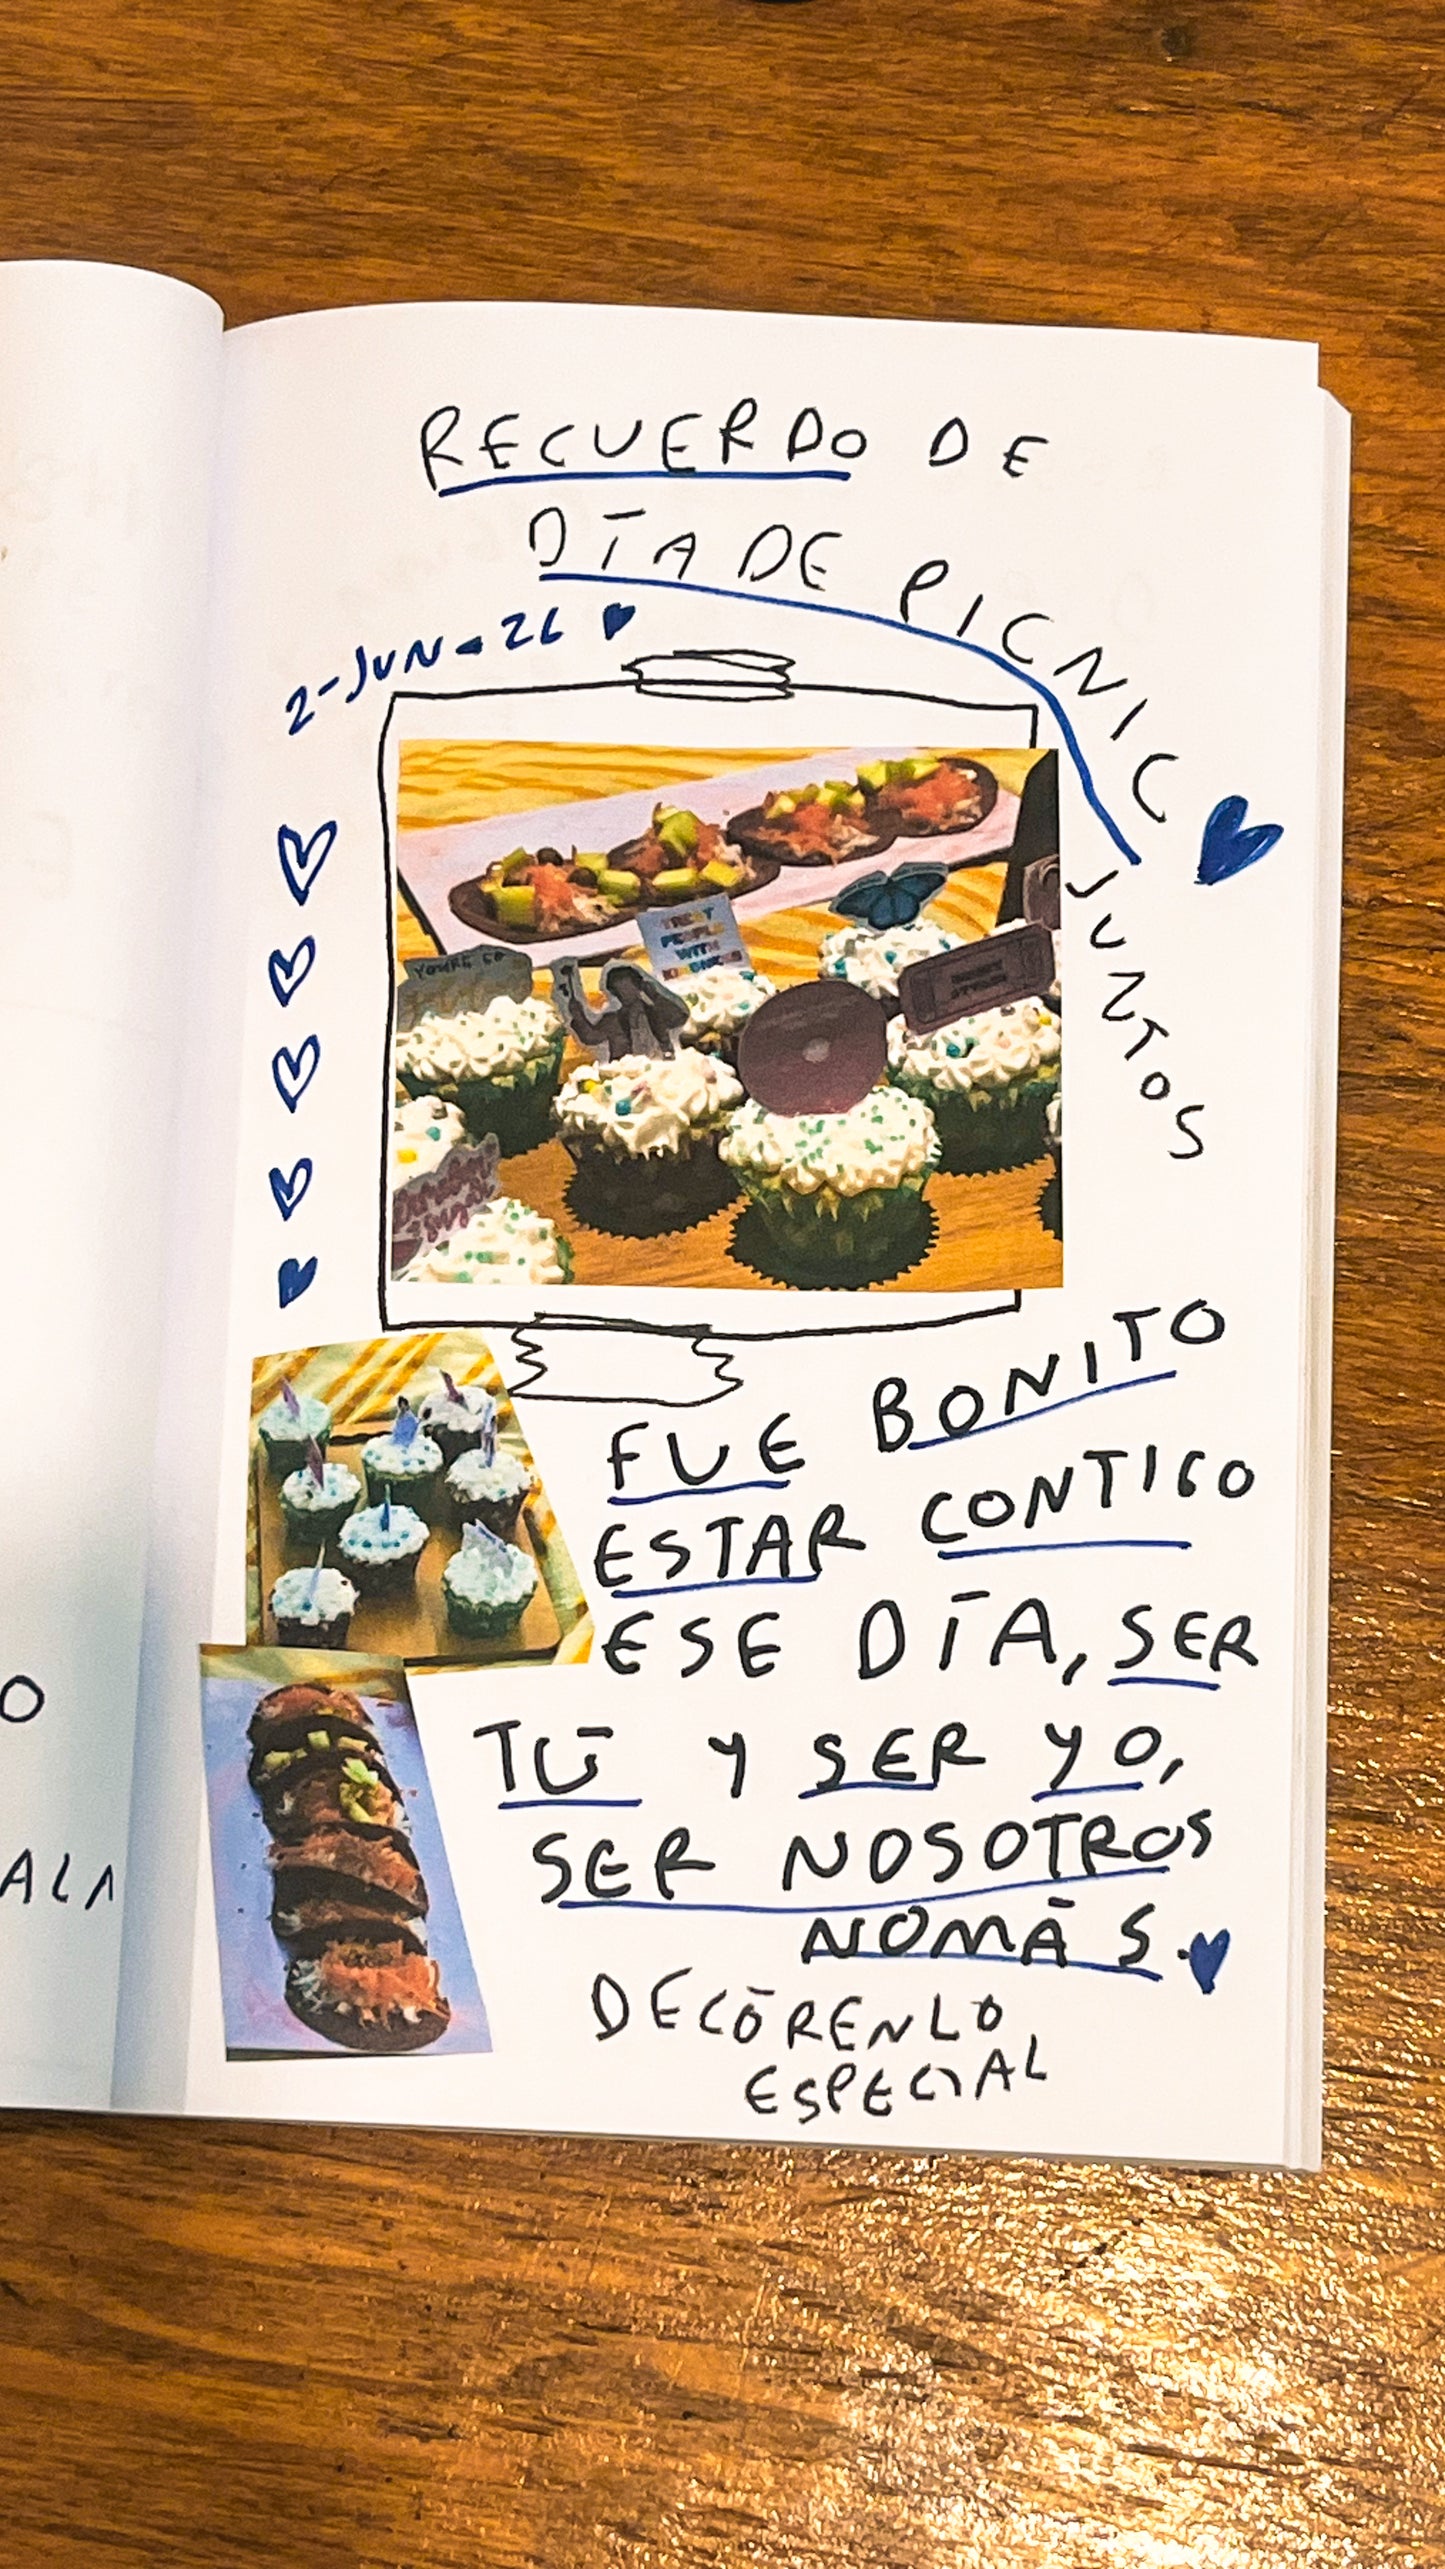 RECUERDO DE
DÍA DE PICNIC
JUNTOS
2-JUN-26
YOU'RE SO
TREAT
PEOPLE
WITH
KINDNESS
FUE BONITO
ESTAR CONTIGO
ESE DÍA, SER
TÚ Y SER YO,
SER NOSOTROS
NOMÁS.
DECÓRENLO
ESPECIAL
O
ALA